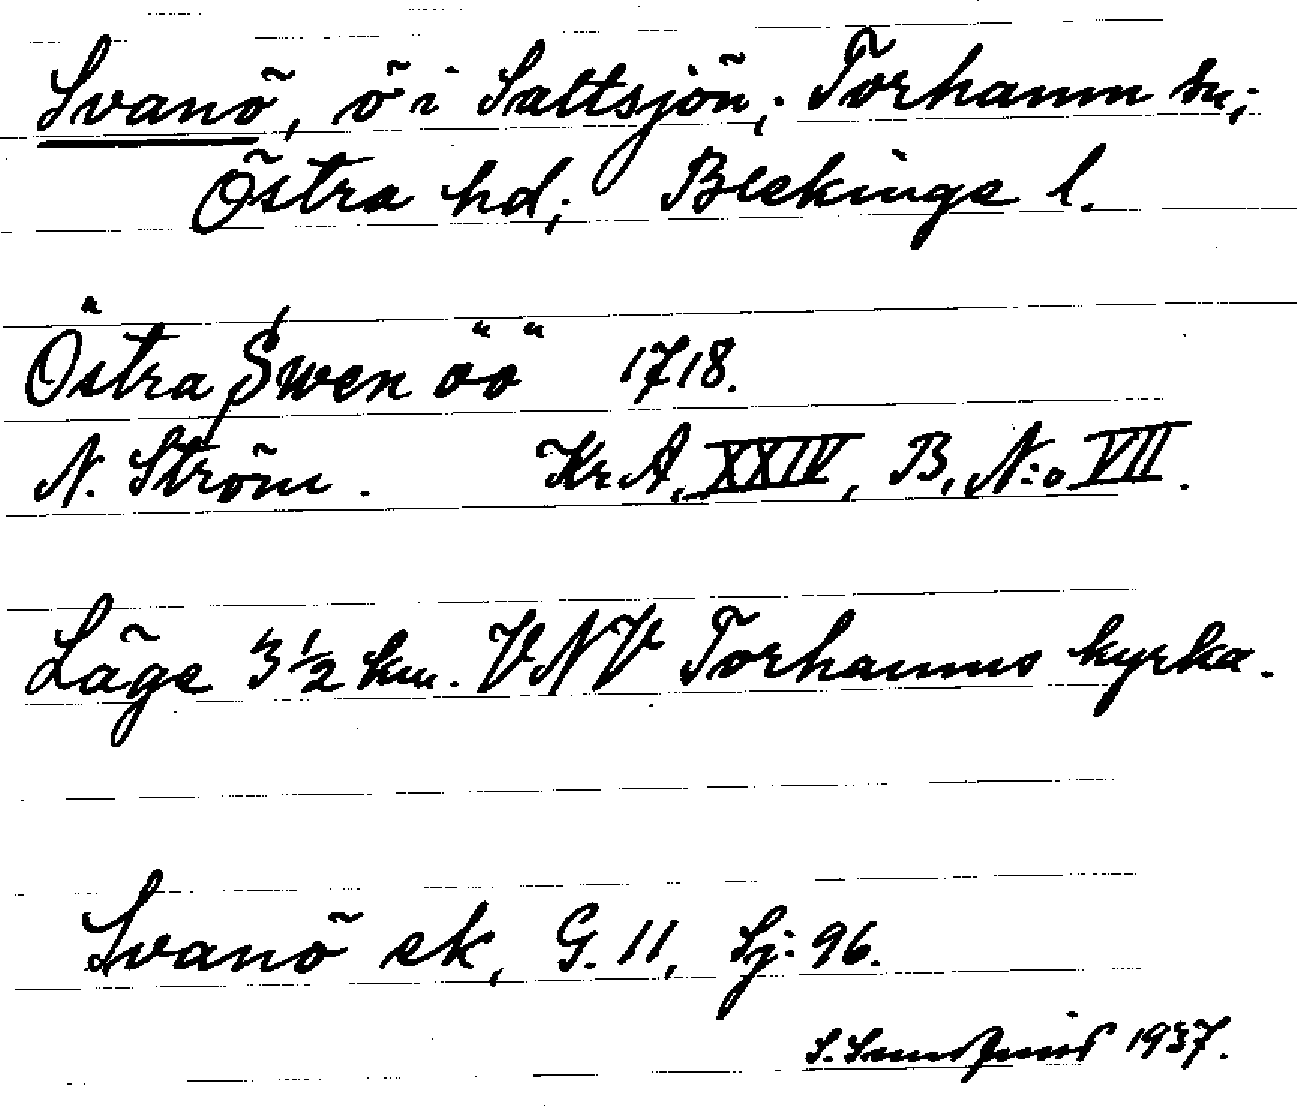 Svanö, ö i Saltsjön; Torhamn sn;
Östra hd; Blekinge l.
Östra Swen öö 1718.
N. Ström. Kr.A. XXIV, B, N:o VII.
Läge 3 1/2 km. VNV Torhamns kyrka.
Svanö ek, G. 11, Sj: 96.
1937.